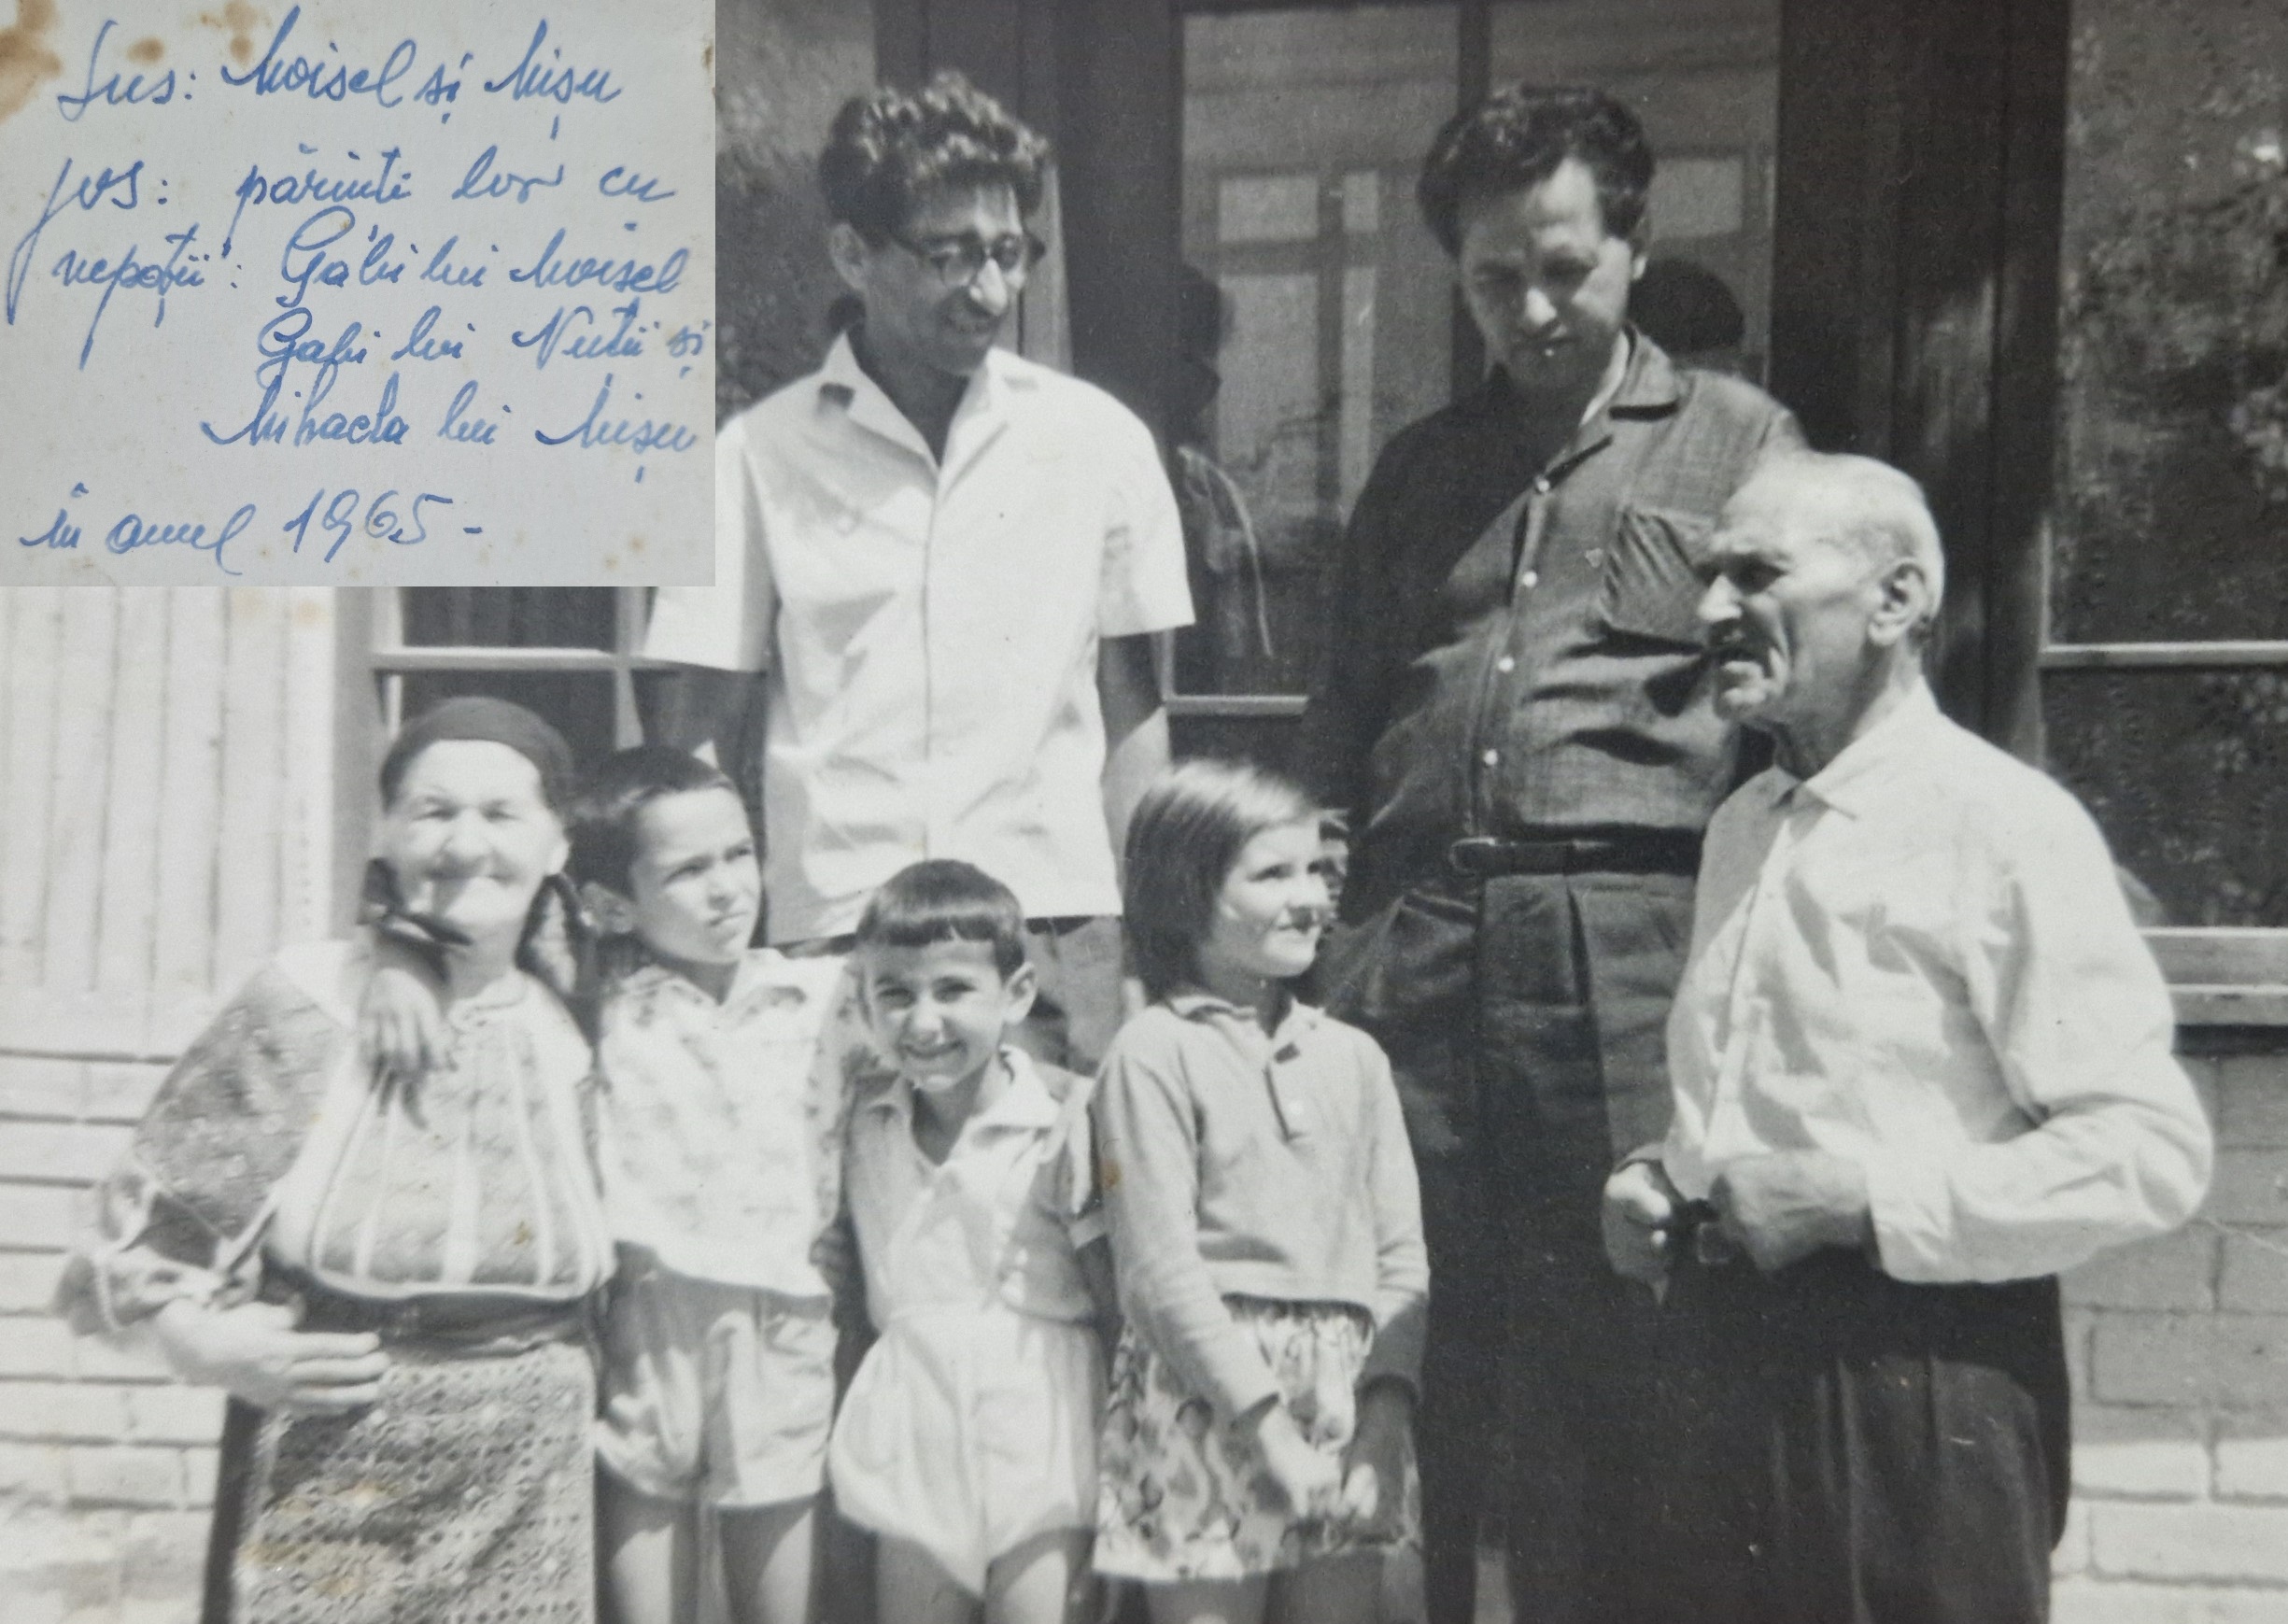 Sus: Moisel și Mișu
jos: părinti lor cu
nepoții: Gabi lui Moisel
Gabi lui Nuții și
Mihaela lui Mișu
în anul 1965 -